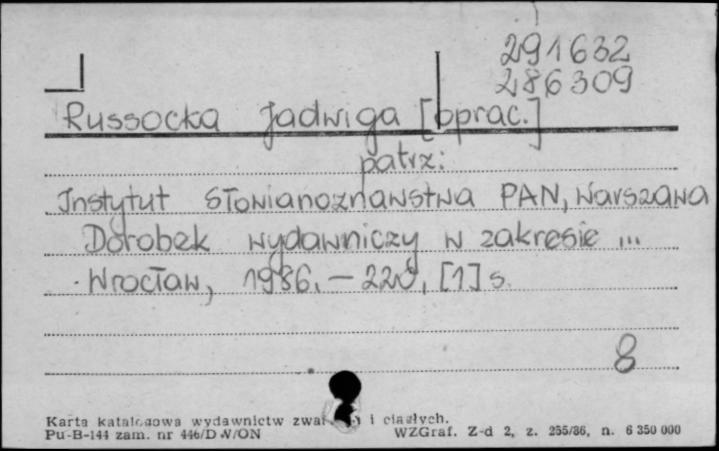 291632
286309
Russocka Jadwiga [oprac.]
patrz:
Instytut Słowianoznawstwa PAN, Warszawa
Dorobek wydawniczy w zakresie ...
Wrocław, 1986. – 220, [1] s.
8
Karta katalogowa wydawnictw i ciągłych.
Pu-B-144 zam. nr 446/D W/ON WZGraf. Z-d 2, z. 255/86, n. 6 350 000